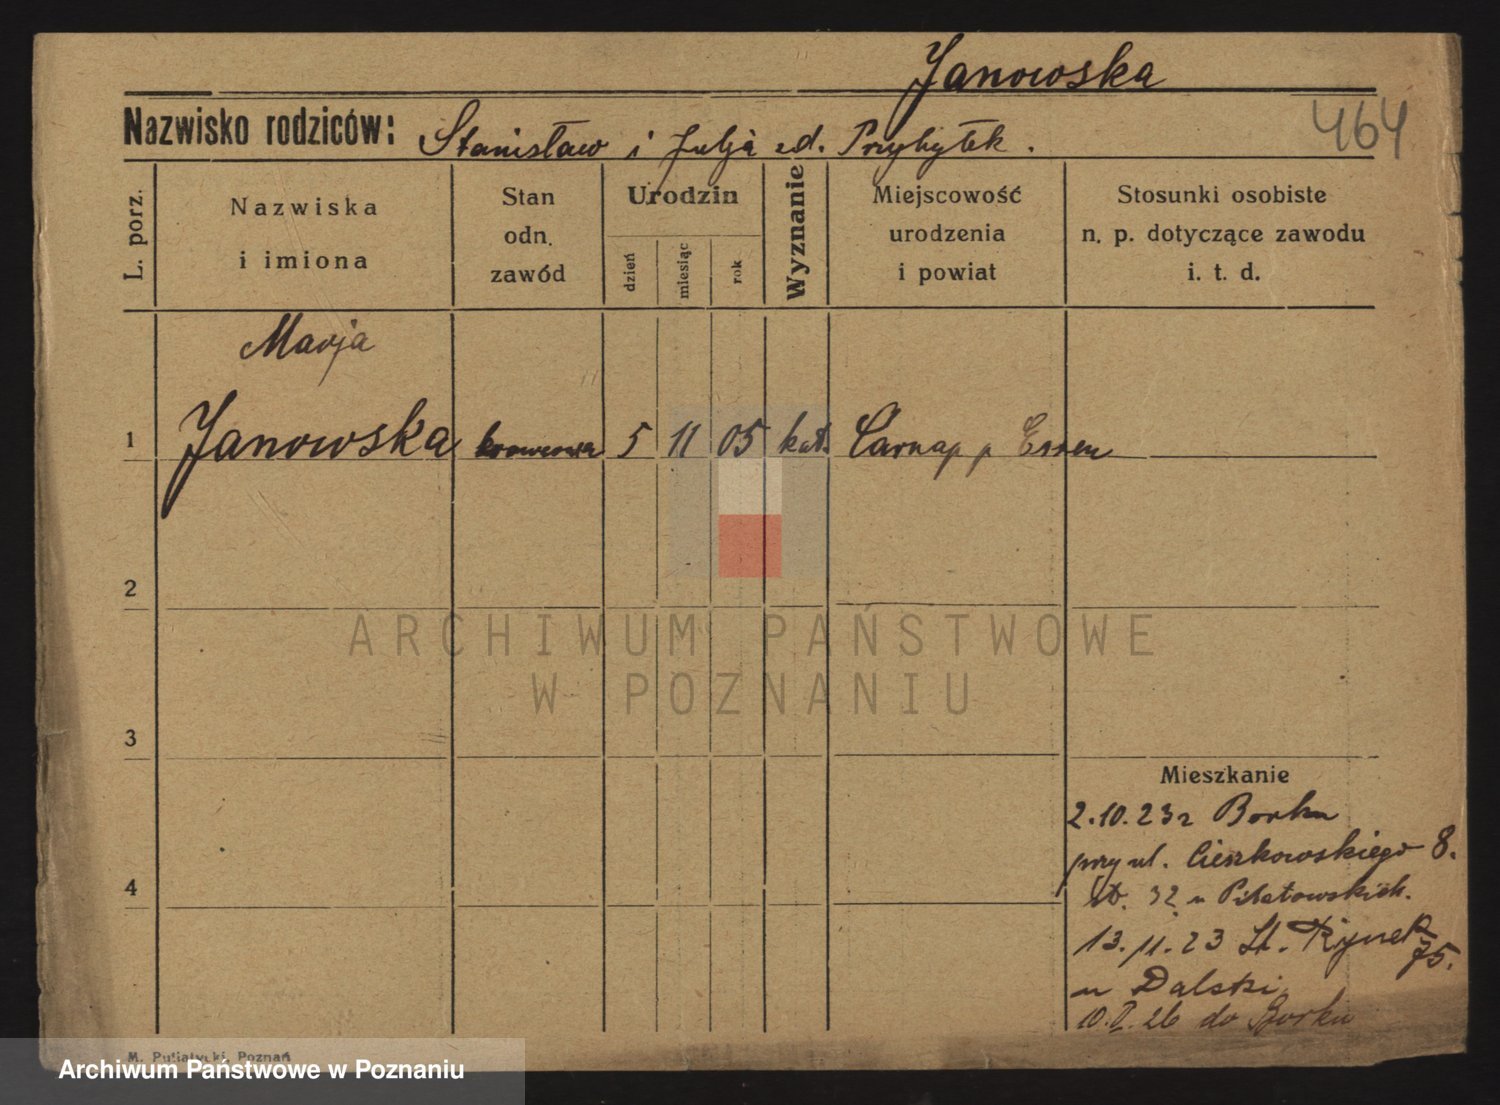 Janowska
464
Nazwisko rodziców: Stanisław i Julja zd. Przybyłek.
L. porz.
Nazwiska i imiona
Stan odn. zawód
Urodzin
dzień
miesiąc
rok
Wyznanie
Miejscowość urodzenia i powiat
Stosunki osobiste n. p. dotyczące zawodu i. t. d.
Marja
1 Janowska krawcowa 5 11 05 kat. Carnap p Essen
2
ARCHIWUM PAŃSTWOWE
W POZNANIU
3
Mieszkanie
2.10.23 z Borku
przy ul. Cieszkowskiego 8.
4
32 u
13.11.23 St. Rynek 75.
u Dalski
10.I.26 do Borku
M. Putiatycki, Poznań
Archiwum Państwowe w Poznaniu